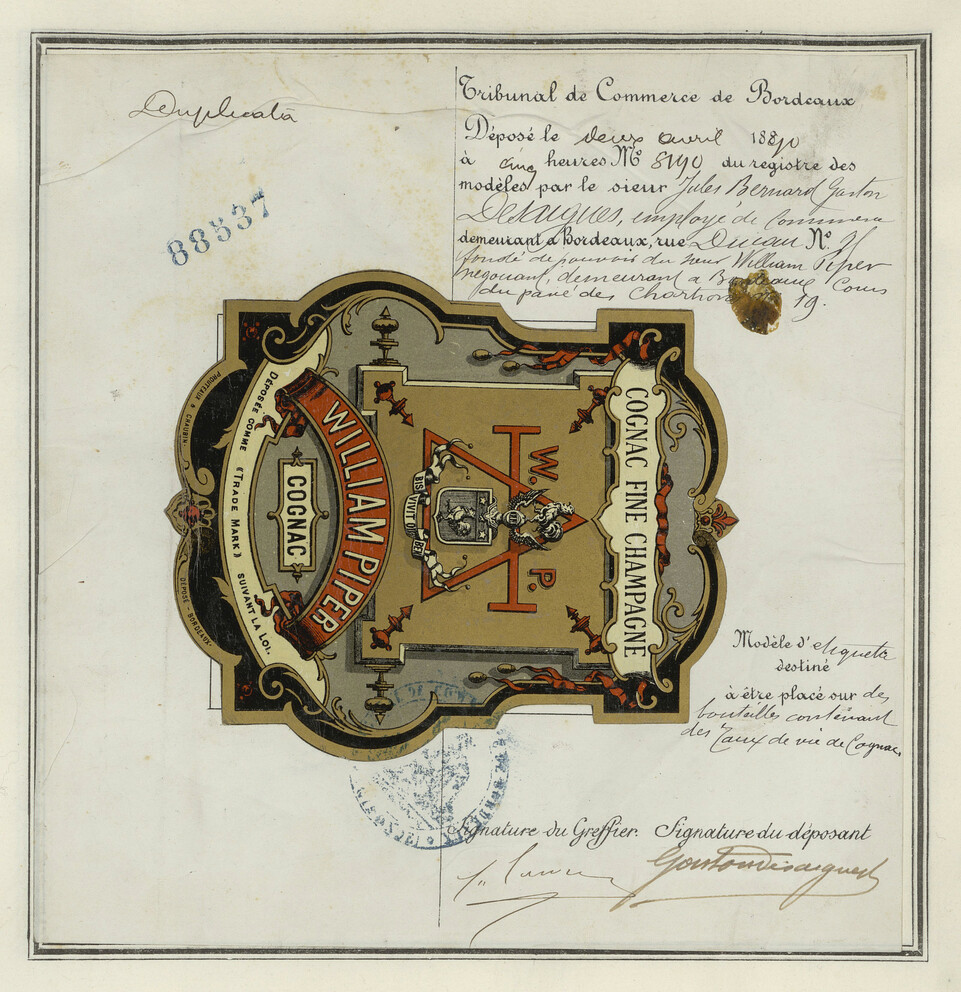 Duplicata
88537
Tribunal de Commerce de Bordeaux
Déposé le deux avril 1880
à cinq heures No 8190 du registre des
modèles par le sieur Jules Bernard Gaston
Desaigues, employé de commerce
demeurant à Bordeaux, rue Ducau No
fondé de pouvoir du sieur William Piper
négociant, demeurant à Bordeaux Cours
du pavé des Chartrons No 19.
COGNAC FINE CHAMPAGNE
W. P.
BIS VIVIT QUI BE
WILLIAM PIPER
COGNAC
DÉPOSÉE COMME «TRADE MARK» SUIVANT LA LOI.
PROUTEAUX & CHAUBIN.
DÉPOSÉ - BORDEAUX.
Modèle d'etiquette
destiné
à être placé sur des
bouteilles contenant
des Eaux de vie de Cognac.
Signature du Greffier. Signature du déposant
Gaston Desaigues